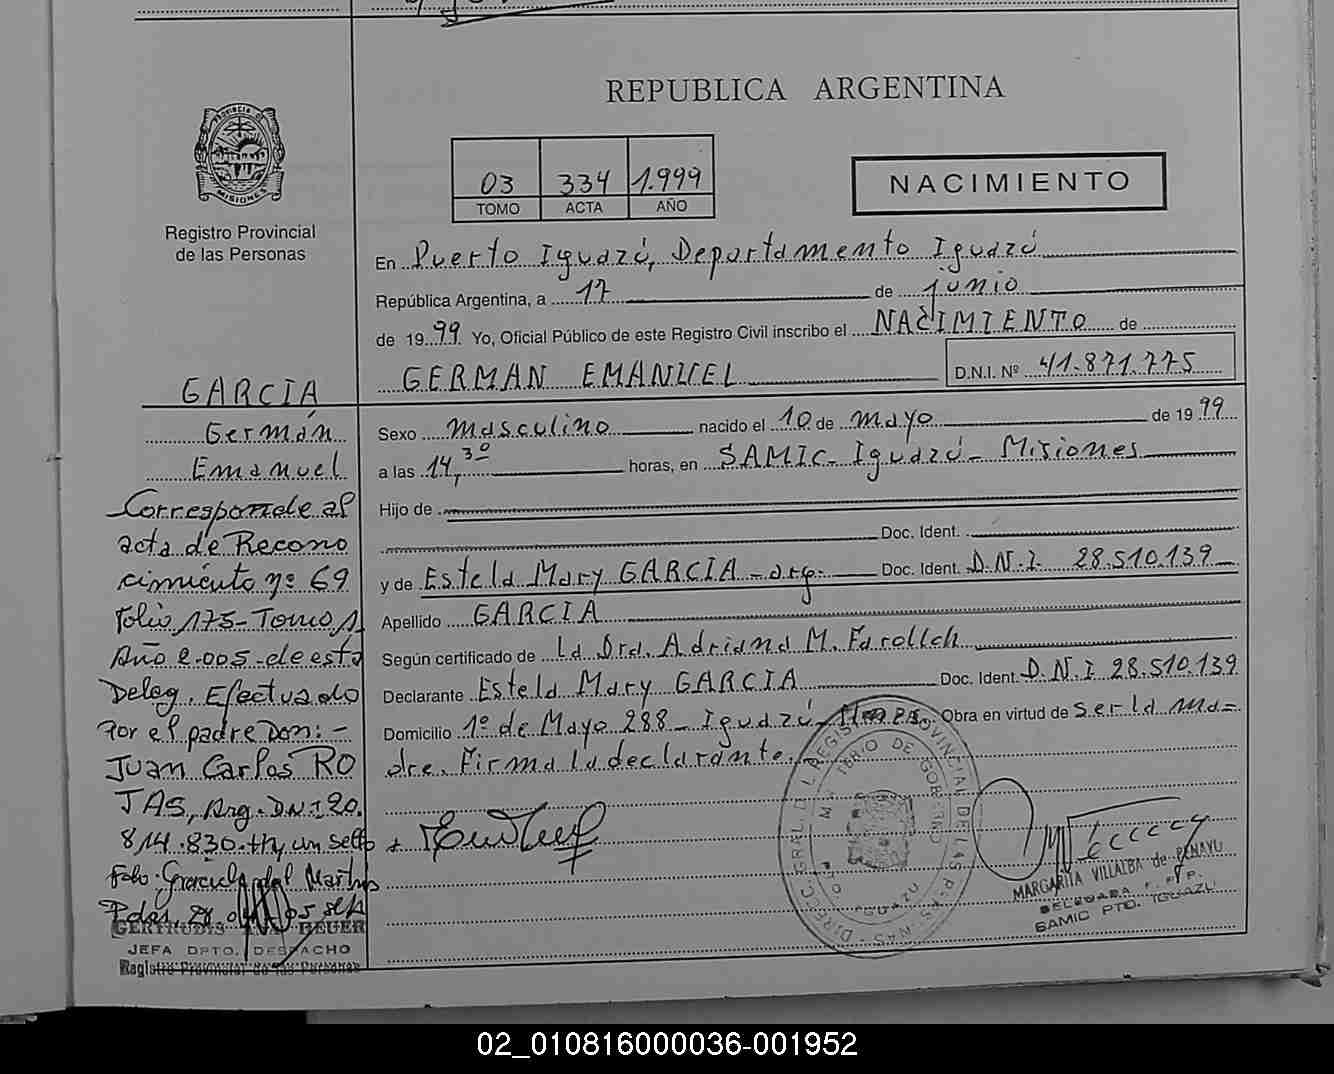 REPUBLICA ARGENTINA
PROVINCIA DE MISIONES
Registro Provincial
de las Personas
03 334 1.999
TOMO ACTA AÑO
NACIMIENTO
En Puerto Iguazú, Departamento Iguazú
República Argentina, a 17 de junio
de 1999 Yo, Oficial Público de este Registro Civil inscribo el NACIMIENTO de
GERMAN EMANUEL D.N.I. Nº 41.871.775
Sexo masculino nacido el 10 de mayo de 1999
a las 14,30 horas, en SAMIC- Iguazú- Misiones
Hijo de
Doc. Ident.
y de Estela Mary GARCIA - arg. Doc. Ident. D.N.I. 28.510.139
Apellido GARCIA
Según certificado de la Dra. Adriana M.
Declarante Estela Mary GARCIA Doc. Ident. D.N.I 28.510.139
Domicilio 1º de Mayo 288 - Iguazú - Obra en virtud de ser la ma=
dre. Firma la declarante.
GARCIA
Germán
Emanuel
Corresponde al
acta de Recono
cimiento nº 69
Folio 175- Tomo 1
Año 2.005 - de esta
Deleg. Efectuado
Por el padre Don: -
Juan Carlos RO
JAS, Arg. D.N.I 20.
814.830.- Hay un sello
Fdo. Graciela del
Pdas.
GERTRUDIS BEUER
JEFA DPTO. DESPACHO
Registro Provincial de las Personas
MINISTERIO DE GOBIERNO
MARGARITA VILLALBA de PENAYO
DELEGADA
SAMIC PTO. IGUAZU
02_010816000036-001952